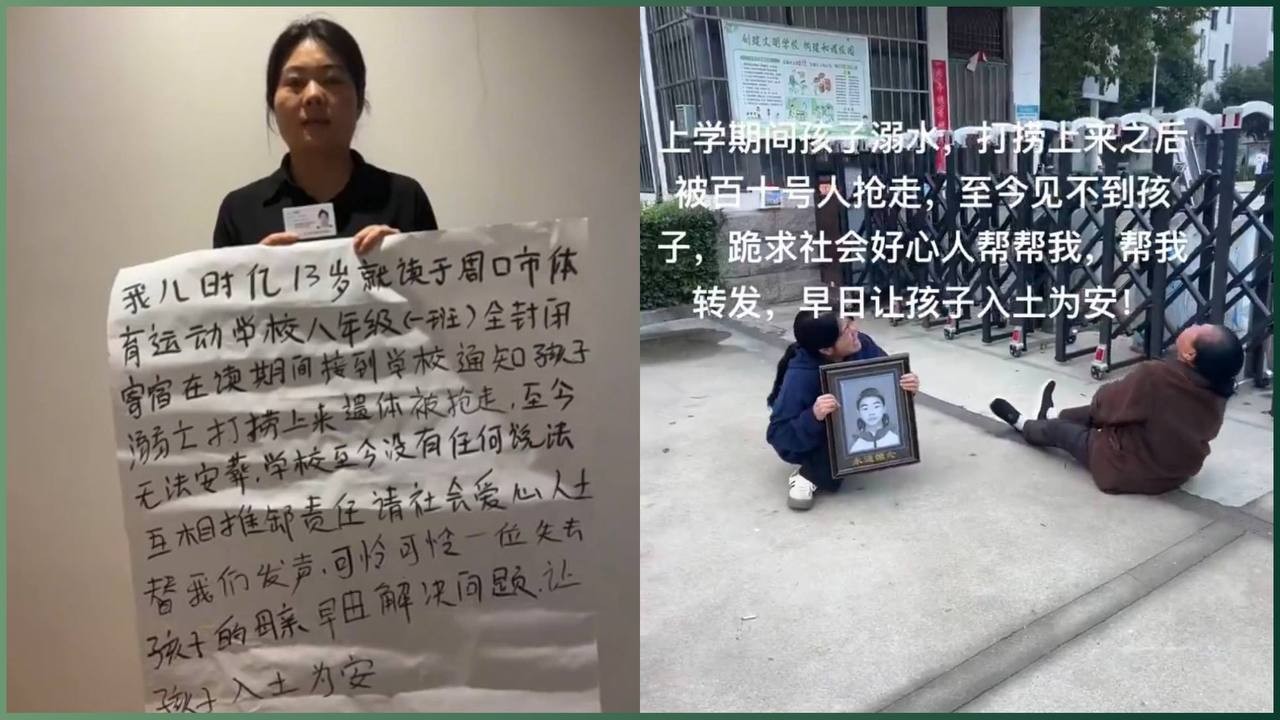 我儿时亿13岁就读于周口市体
育运动学校八年级(一班)全封闭
寄宿在读期间接到学校通知孩子
溺亡打捞上来遗体被抢走,至今
无法安葬,学校至今没有任何说法
互相推卸责任请社会爱心人士
替我们发声,可怜可怜一位失去
孩子的母亲早日解决问题,让
孩子入土为安
创建文明学校 构建和谐校园
上学期间孩子溺水,打捞上来之后
被百十号人抢走,至今见不到孩
子,跪求社会好心人帮帮我,帮我
转发,早日让孩子入土为安!